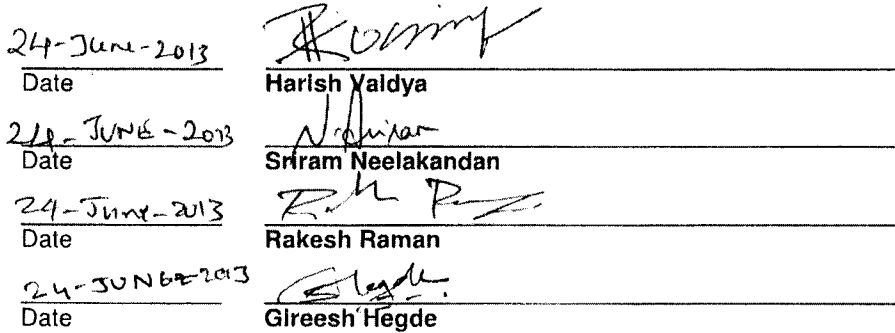 24-June-2013
Date Harish Vaidya
24-JUNE-2013 N. Sriram
Date Sriram Neelakandan
24-June-2013
Date Rakesh Raman
24-JUNE-2013 G Hegde
Date Gireesh Hegde